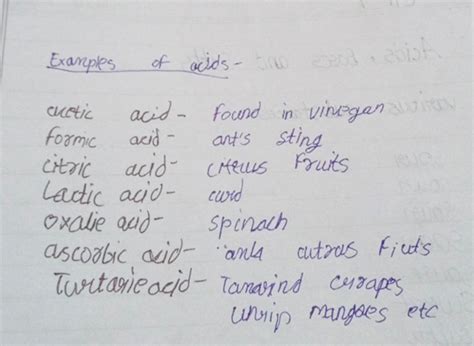 Examples of acids-
acetic acid- found in vinegan
formic acid- ant's sting
citric acid- citrus Fruits
Lactic acid- curd
oxalie acid- spinach
ascorbic acid- amla cutrus Fiuts
Turtarie acid- Tamarind cyrapes
unrip mangoes etc